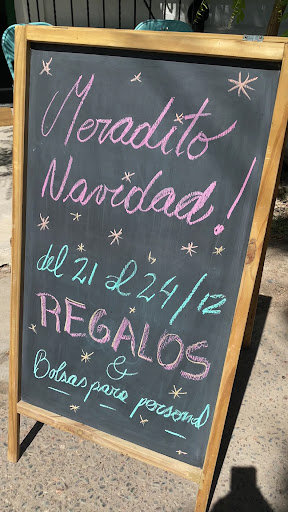 Meradito
Navidad!
del 21 al 24/12
REGALOS
&
Bolsas para personal